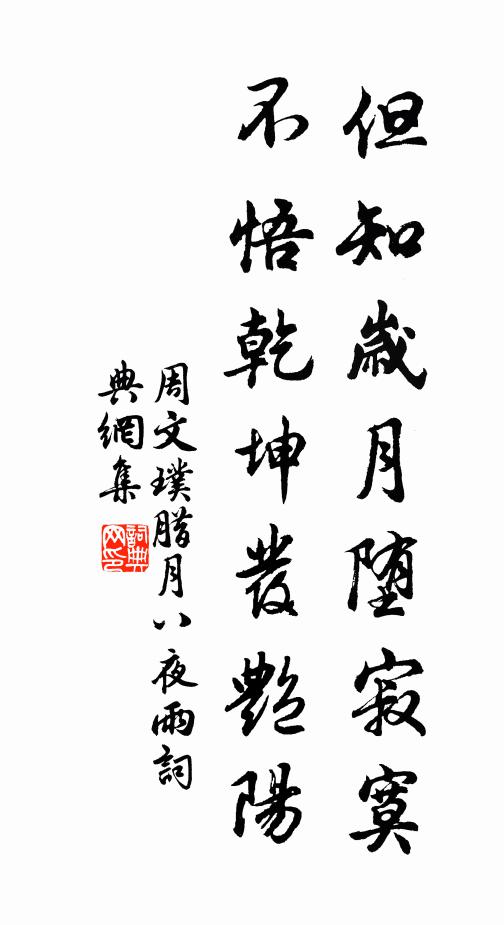 但知歲月墮寂寞
不悟乾坤發艷陽
周文璞臘月八夜雨詞
典網集
詞典網印